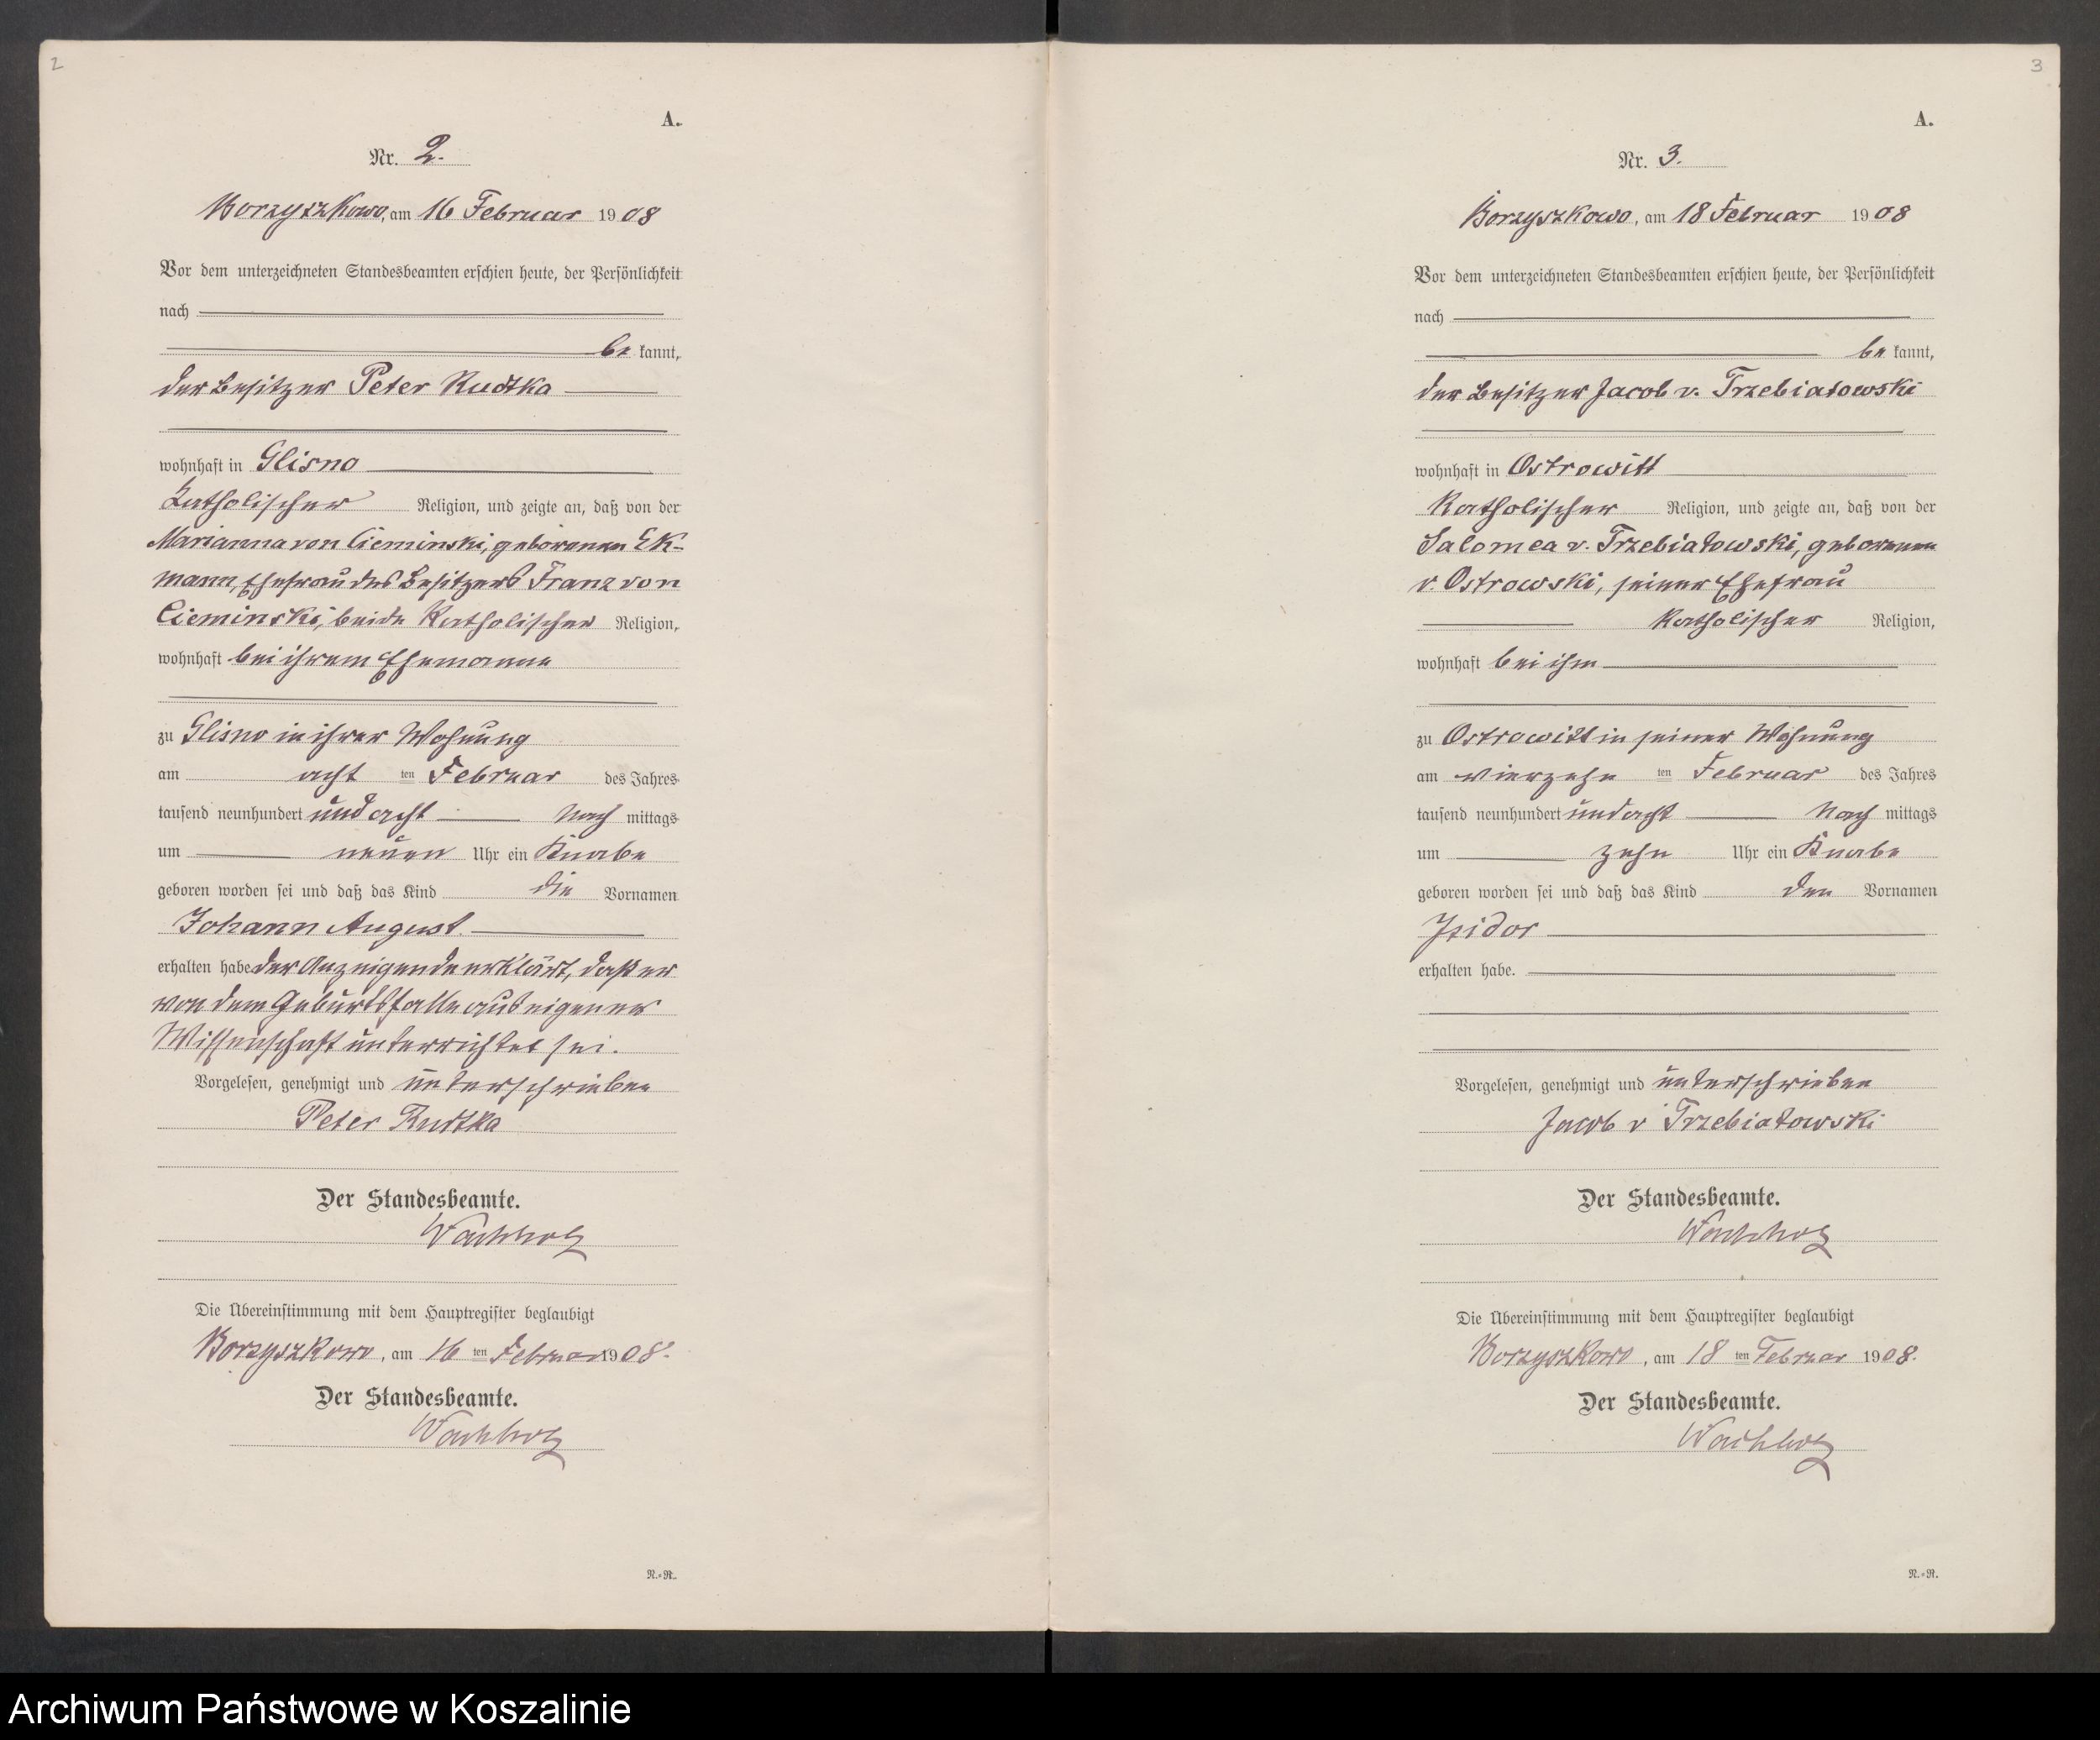 2
A.
Nr. 2.
Borzyszkowo, am 16 Februar 1908
Vor dem unterzeichneten Standesbeamten erschien heute, der Persönlichkeit
nach
be kannt,
der Besitzer Peter Rudtka
wohnhaft in Glisno
Katholischer Religion, und zeigte an, daß von der
Marianna von Cieminski, geborenen Ek-
mann, Ehefrau des Besitzers Franz von
Cieminski, beide Katholischer Religion,
wohnhaft bei ihrem Ehemanne
zu Glisno in ihrer Wohnung
am acht ten Februar des Jahres
tausend neunhundert und acht Nach mittags
um neuen Uhr ein Knabe
geboren worden sei und daß das Kind die Vornamen
Johann August
erhalten habe der Anzeigende erklärt, daß er
von dem Geburtsfalle aus eigener
Wissenschaft unterrichtet sei.
Vorgelesen, genehmigt und unterschrieben
Peter Rudtka
Der Standesbeamte.
Wachholz
Die Übereinstimmung mit dem Hauptregister beglaubigt
Borzyszkowo, am 16 ten Februar 1908.
Der Standesbeamte.
Wachholz
N.=R.
3
A.
Nr. 3.
Borzyszkowo, am 18 Februar 1908
Vor dem unterzeichneten Standesbeamten erschien heute, der Persönlichkeit
nach
be kannt,
der Besitzer Jacob v. Trzebiatowski
wohnhaft in Ostrowitt
Katholischer Religion, und zeigte an, daß von der
Salomea v. Trzebiatowski, geborenen
v. Ostrowski, seiner Ehefrau
Katholischer Religion,
wohnhaft bei ihm
zu Ostrowitt in seiner Wohnung
am vierzehn ten Februar des Jahres
tausend neunhundert und acht Nach mittags
um zehn Uhr ein Knabe
geboren worden sei und daß das Kind den Vornamen
Isidor
erhalten habe.
Vorgelesen, genehmigt und unterschrieben
Jacob v Trzebiatowski
Der Standesbeamte.
Wachholz
Die Übereinstimmung mit dem Hauptregister beglaubigt
Borzyszkowo, am 18 ten Februar 1908.
Der Standesbeamte.
Wachholz
N.=R.
Archiwum Państwowe w Koszalinie